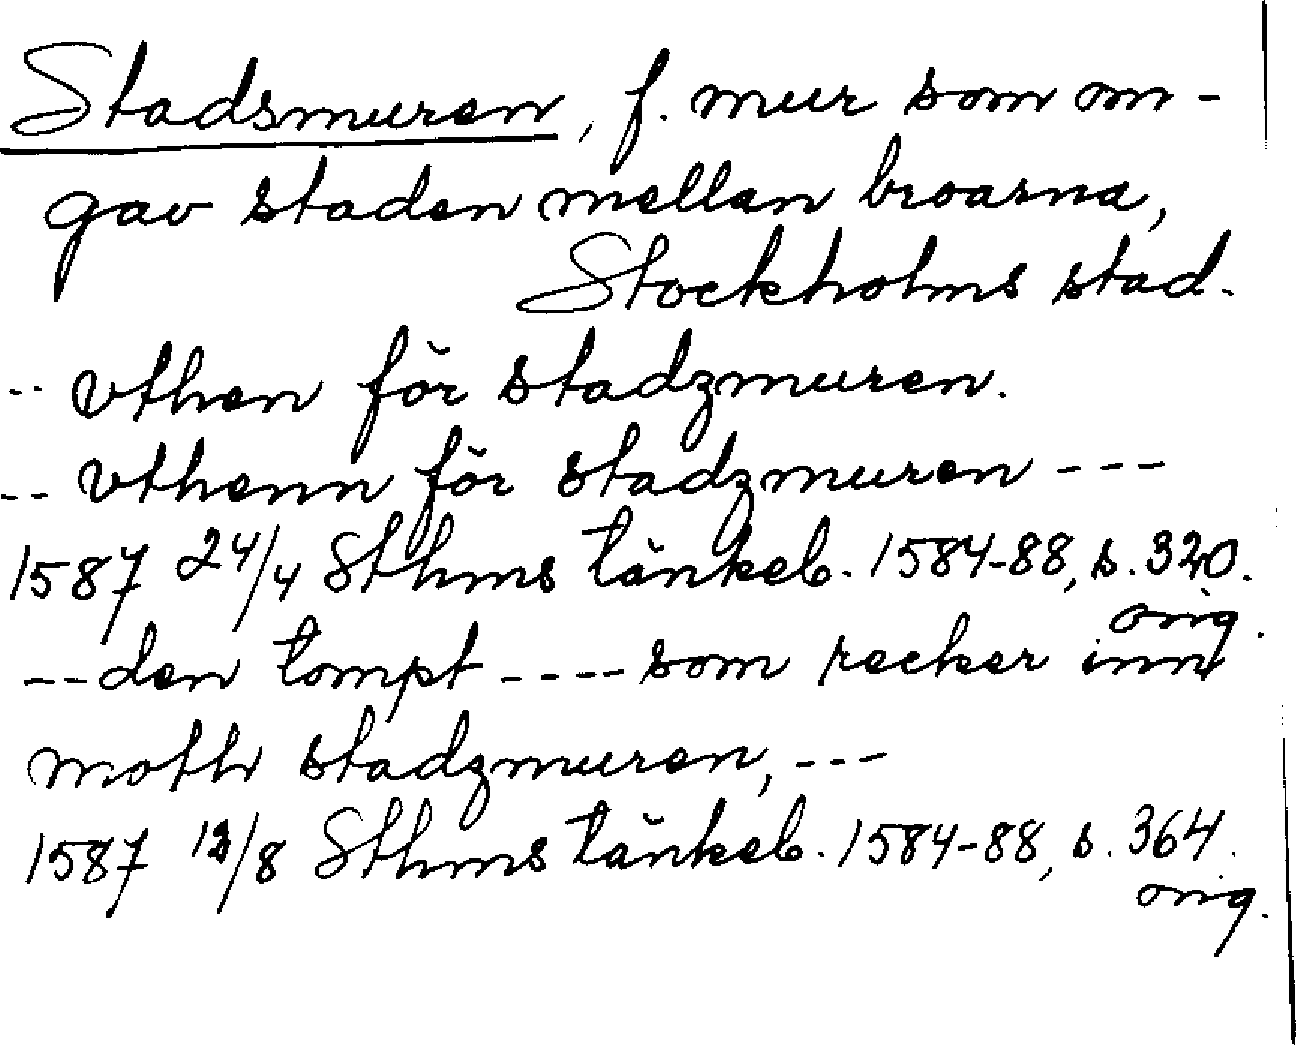 Stadsmuren, f. mur som om-
gav staden mellan broarna,
Stockholms stad.
-- vthen för stadzmuren.
-- vthenn för stadzmuren ---
1587 24/4 Sthms tänkeb. 1584-88, s. 320.
orig.
-- den tompt ---- som recker inn
moth stadzmuren, ---
1587 /8 Sthms tänkeb. 1584-88, s. 364.
orig.